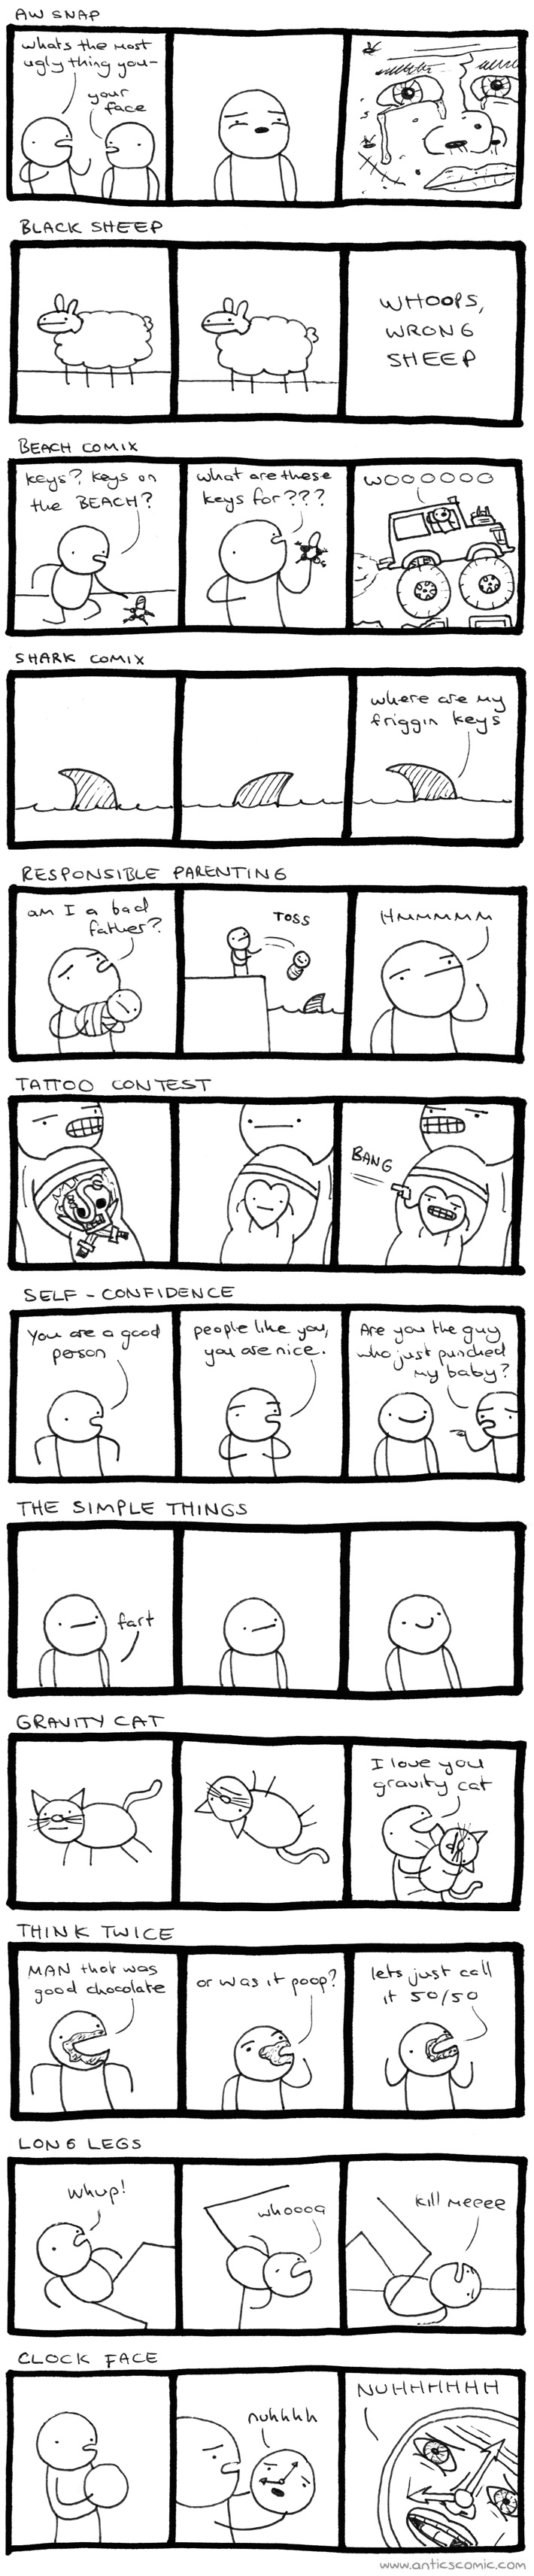 AW SNAP
whats the most
ugly thing you-
your
face
BLACK SHEEP
WHOOPS,
WRONG
SHEEP
BEACH COMIX
keys? keys on
the BEACH?
what are these
keys for???
WOOOOOO
SHARK COMIX
where are my
friggin keys
RESPONSIBLE PARENTING
am I a bad
father?
TOSS
HMMMMM
TATTOO CONTEST
BANG
SELF-CONFIDENCE
You are a good
person
people like you,
you are nice.
Are you the guy
who just punched
my baby?
THE SIMPLE THINGS
fart
GRAVITY CAT
I love you
gravity cat
THINK TWICE
MAN that was
good chocolate
or was it poop?
lets just call
it 50/50
LONG LEGS
whup!
whoooa
kill meeee
CLOCK FACE
nuhhhh
NUHHHHHHH
www.anticscomic.com